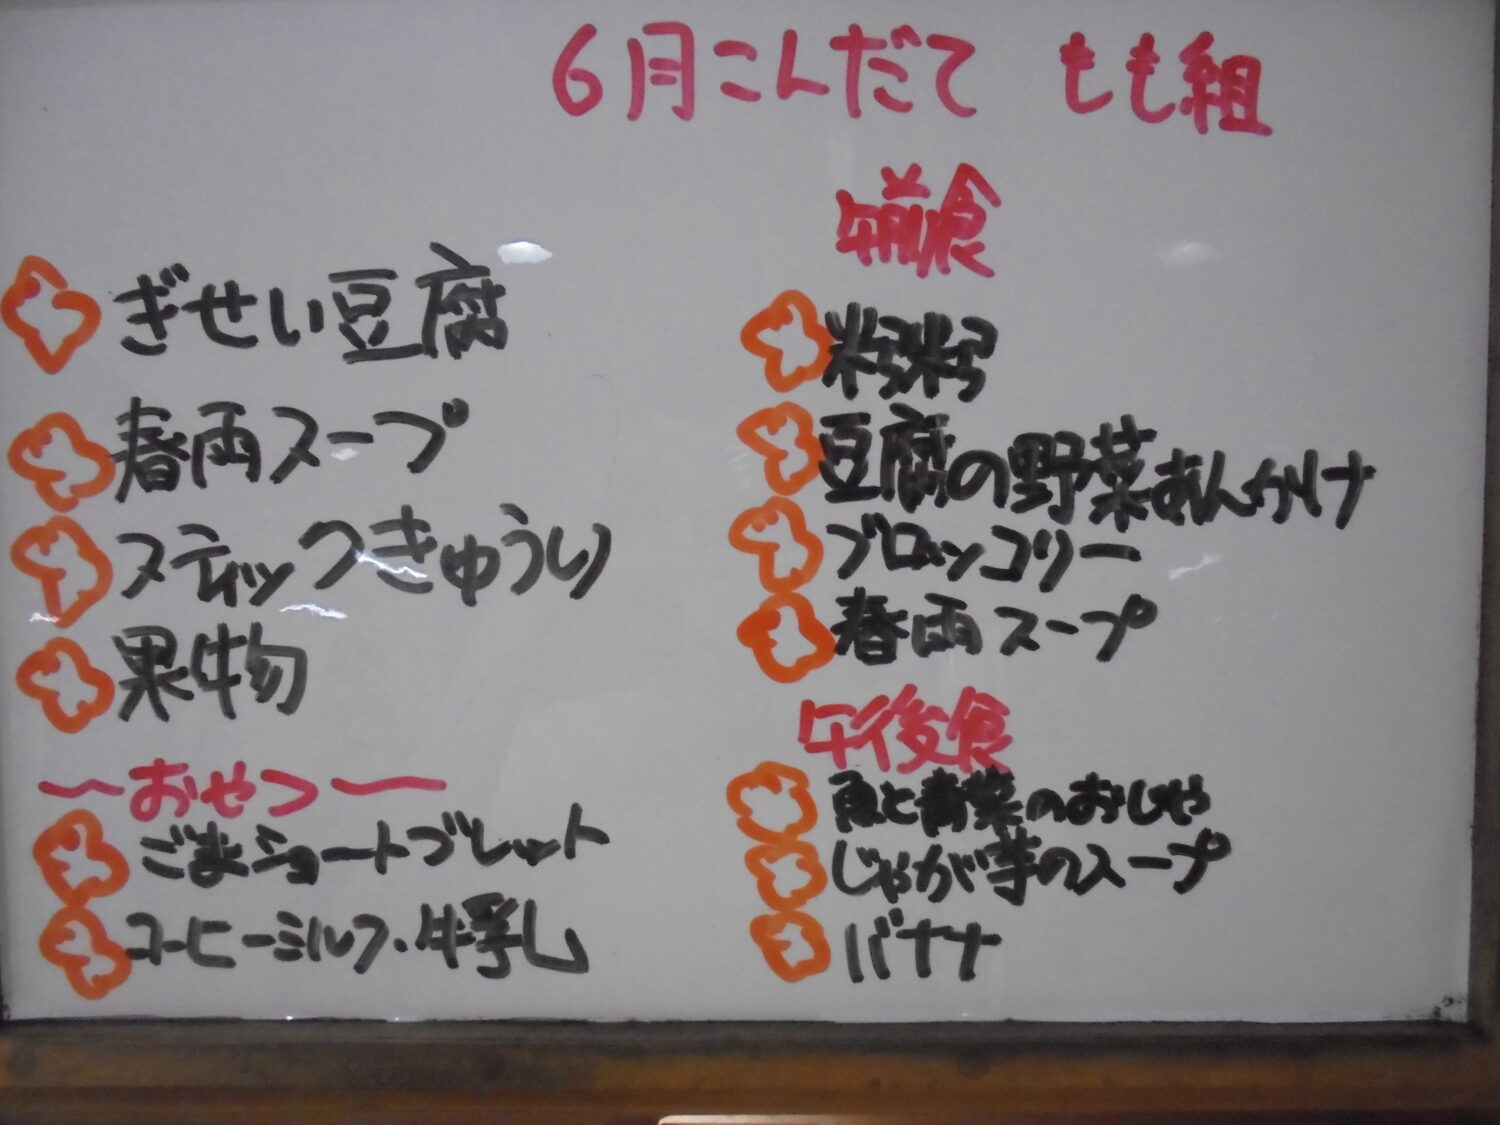 6月こんだて もも組
ぎせい豆腐
春雨スープ
スティックきゅうり
果物
おやつ
ごまショートブレット
コーヒーミルク・牛乳
午前食
豆腐の野菜あんかけ
ブロッコリー
春雨スープ
午後食
魚と青菜のおじや
じゃが芋のスープ
バナナ